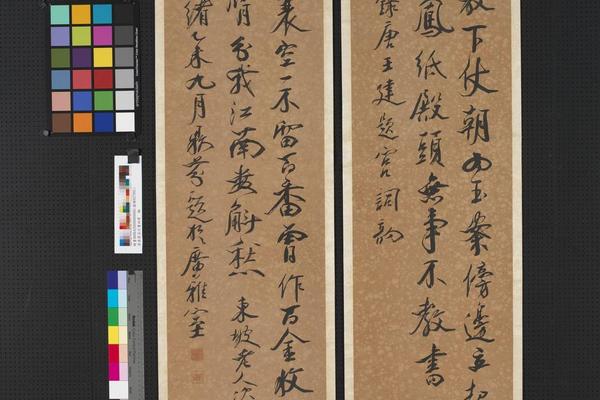 放下仗朝回玉案傍邊立起
鳳紙殿頭無事不教書
錄唐王建題宮詞韵
囊空一不留百番曾作百金收
腎分我江南數斛愁 東坡老人次
緒乙未九月 題於廣雅室